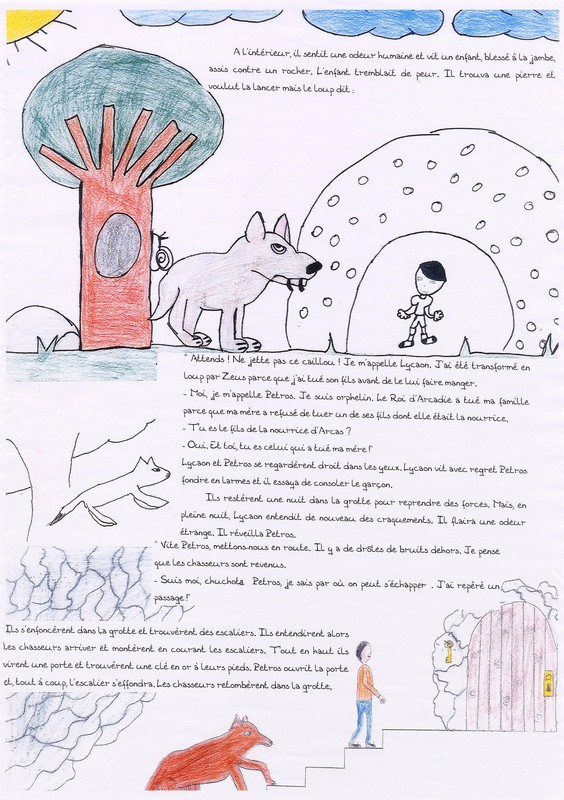 A l'intérieur, il sentit une odeur humaine et vit un enfant, blessé à la jambe,
assis contre un rocher. L'enfant tremblait de peur. Il trouva une pierre et
voulut la lancer mais le loup dit :
" Attends ! Ne jette pas ce caillou ! Je m'appelle Lycaon. J'ai été transformé en
Loup par Zeus parce que j'ai tué son fils avant de le lui faire manger.
- Moi, je m'appelle Petros. Je suis orphelin. Le Roi d'Arcadie a tué ma famille
parce que ma mère a refusé de tuer un de ses fils dont elle était la nourrice.
- Tu es le fils de la nourrice d'Arcas ?
- Oui. Et toi, tu es celui qui a tué ma mère !"
Lycaon et Petros se regardèrent droit dans les yeux. Lycaon vit avec regret Petros
fondre en larmes et il essaya de consoler le garçon.
Ils restèrent une nuit dans la grotte pour reprendre des forces. Mais, en
pleine nuit, Lycaon entendit de nouveau des craquements. Il flaira une odeur
étrange. Il réveilla Petros.
" Vite Petros, mettons-nous en route. Il y a de drôles de bruits dehors. Je pense
que les chasseurs sont revenus.
- Suis moi, chuchota Petros, je sais par où on peut s'échapper . J'ai repéré un
passage !"
Ils s'enfoncèrent dans la grotte et trouvèrent des escaliers. Ils entendirent alors
les chasseurs arriver et montèrent en courant les escaliers. Tout en haut ils
virent une porte et trouvèrent une clé en or à leurs pieds. Petros ouvrit la porte
et, tout à coup, l'escalier s'effondra. Les chasseurs retombèrent dans la grotte.